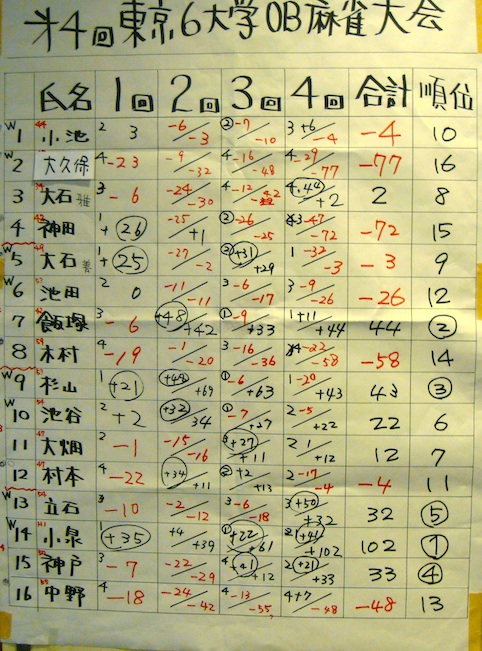 オ4回東京6大学OB麻雀大会
氏名 1回 2回 3回 4回 合計 順位
W 1 小池 2 3 -6/-3 ②-7/-10 3+6/-4 -4 10
W 2 大久保 4-23 -9/-32 4-16/-48 4-29/-77 -77 16
3 大石雅 3-6 -24/-30 4-12/-42 +44/+2 2 8
4 神田 1+26 -25/+1 -26/-25 -47/-72 -72 15
W 5 大石 1+25 -27/-2 +31/+29 1-32/-3 -3 9
W 6 池田 2 0 -11/-11 3-6/-17 3-9/-26 -26 12
7 飯塚 3-6 +48/+42 ①-9/+33 1+11/+44 44 ②
8 木村 4-19 -1/-20 3-16/-36 -22/-58 -58 14
W 9 杉山 1+21 +48/+69 ①-6/+63 1-20/+43 43 ③
W 10 池谷 2+2 +32/34 ①-7/+27 2-5/+22 22 6
11 大畑 2-1 -15/-16 +27/+11 2 1/+12 12 7
12 村本 4-22 +34/+11 +2/+13 2-17/-4 -4 11
W 13 立石 3-10 -2/-12 3-6/-18 3+50/+32 32 ⑤
W 14 小泉 1+35 +4/+39 ①+22/+61 +41/+102 102 ①
15 神戸 3-7 -22/-29 +41/+12 +21/+33 33 ④
16 中野 4-18 -24/-42 4-13/-55 4+7/-48 -48 13